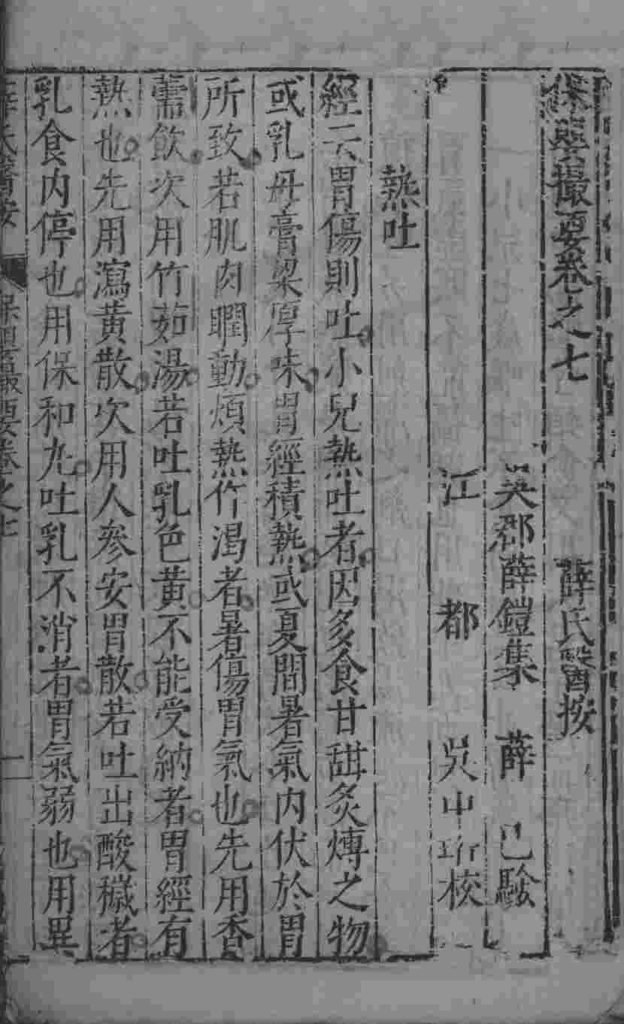 保嬰撮要卷之七 薛氏醫按
吳郡薛鎧集 薛 己驗
江 都 吳中珩校
熱吐
經云胃傷則吐小兒熱吐者因多食甘甜炙煿之物
或乳母膏粱厚味胃經積熱或夏間暑氣內伏於胃
所致若肌肉瞤動煩熱作渴者暑傷胃氣也先用香
薷飲次用竹茹湯若吐乳色黃不能受納者胃經有
熱也先用瀉黃散次用人參安胃散若吐出酸穢者
乳食內停也用保和丸吐乳不消者胃氣弱也用異
薛氏醫按 保嬰撮要卷之七 一